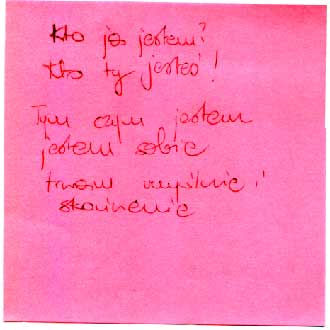 Kto ja jestem?
Kto ty jesteś!
Tym czym jestem
jestem sobie
trwam i